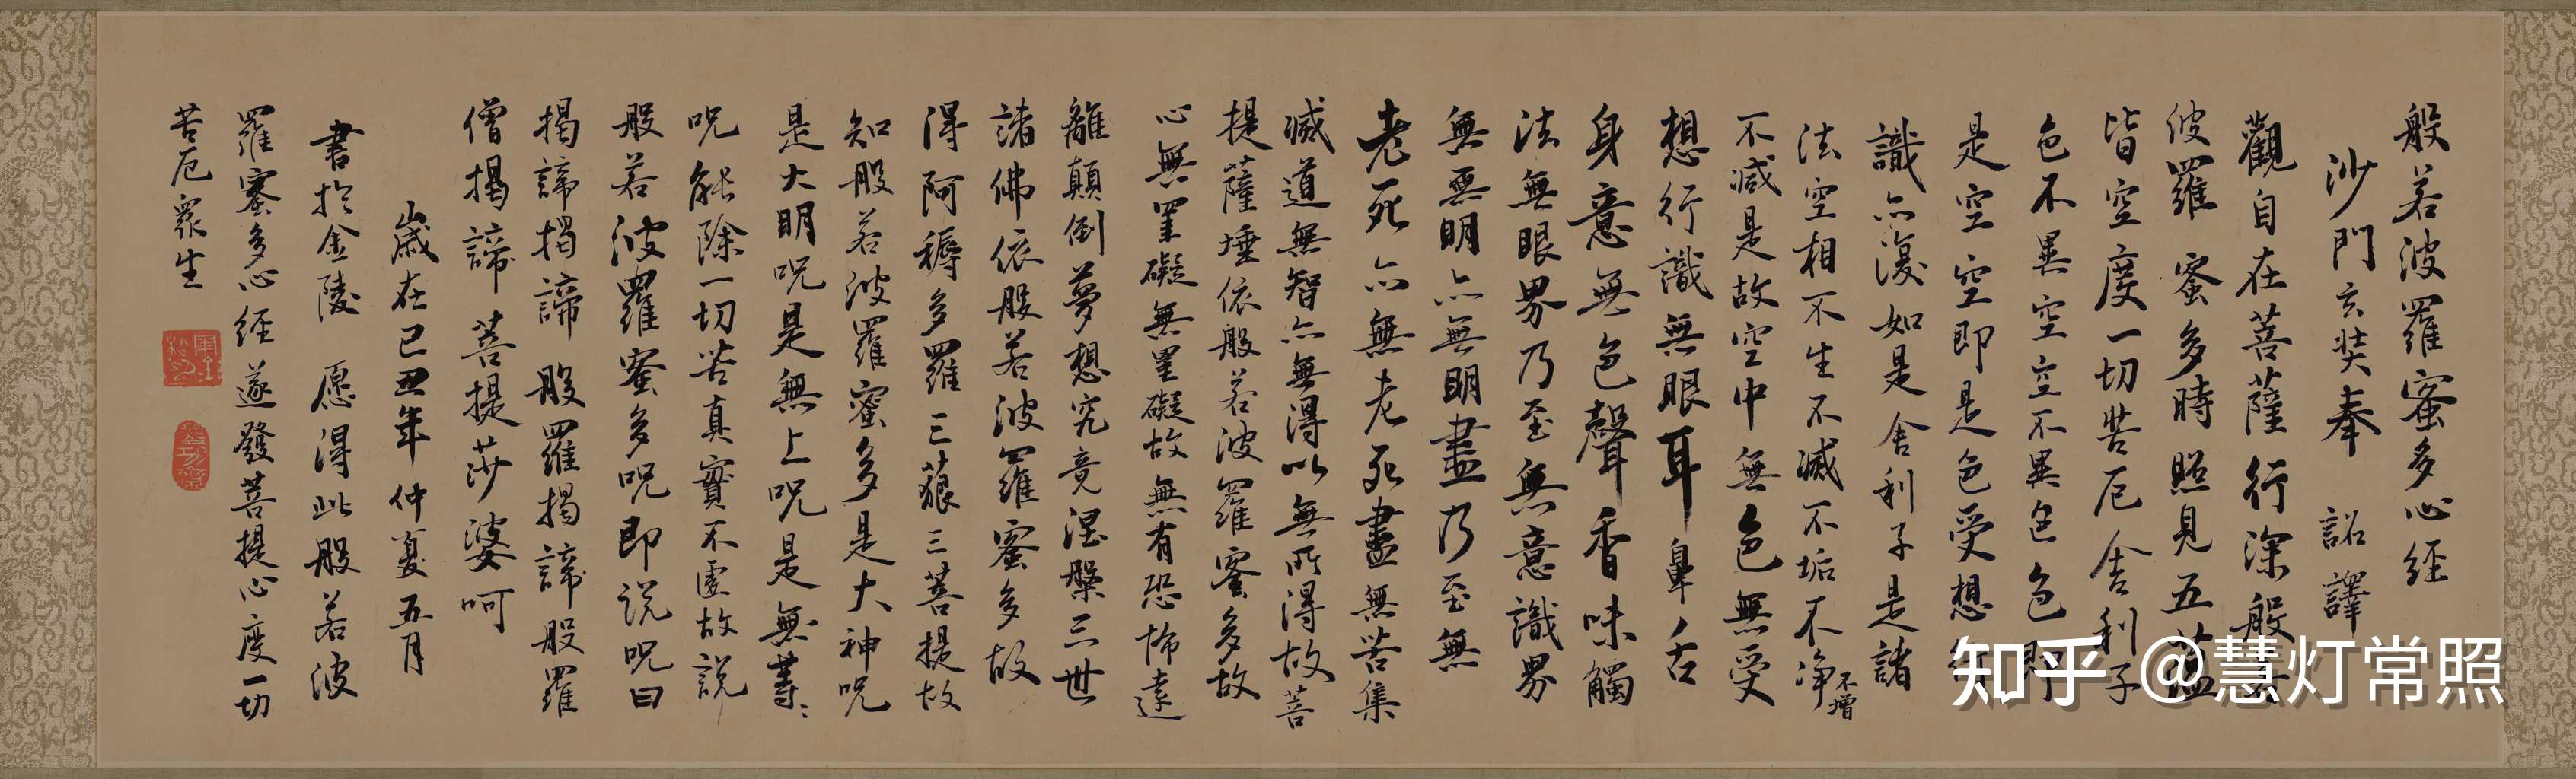 般若波羅蜜多心経
沙門玄奘奉 詔譯
觀自在菩薩行深般若
波羅蜜多時照見五蘊
皆空度一切苦厄舍利子
色不異空空不異色色即
是空空即是色受想行
識亦復如是舍利子是諸
法空相不生不滅不垢不净不增
不減是故空中無色無受
想行識無眼耳鼻舌
身意無色聲香味觸
法無眼界乃至無意識界
無無明亦無明盡乃至無
老死亦無老死盡無苦集
滅道無智亦無得以無所得故菩
提薩埵依般若波羅蜜多故
心無罣礙無罣礙故無有恐怖遠
離顛倒夢想究竟涅槃三世
諸佛依般若波羅蜜多故
得阿耨多羅三藐三菩提故
知般若波羅蜜多是大神呪
是大明呪是無上呪是無等〻
呪能除一切苦真實不虛故說
般若波羅蜜多呪即説呪曰
揭諦揭諦 般羅揭諦 般羅
僧揭諦 菩提莎婆呵
歲在己丑年 仲夏五月
書於金陵 愿得此般若波
羅蜜多心経遂發菩提心度一切
苦厄眾生
知乎 @慧灯常照